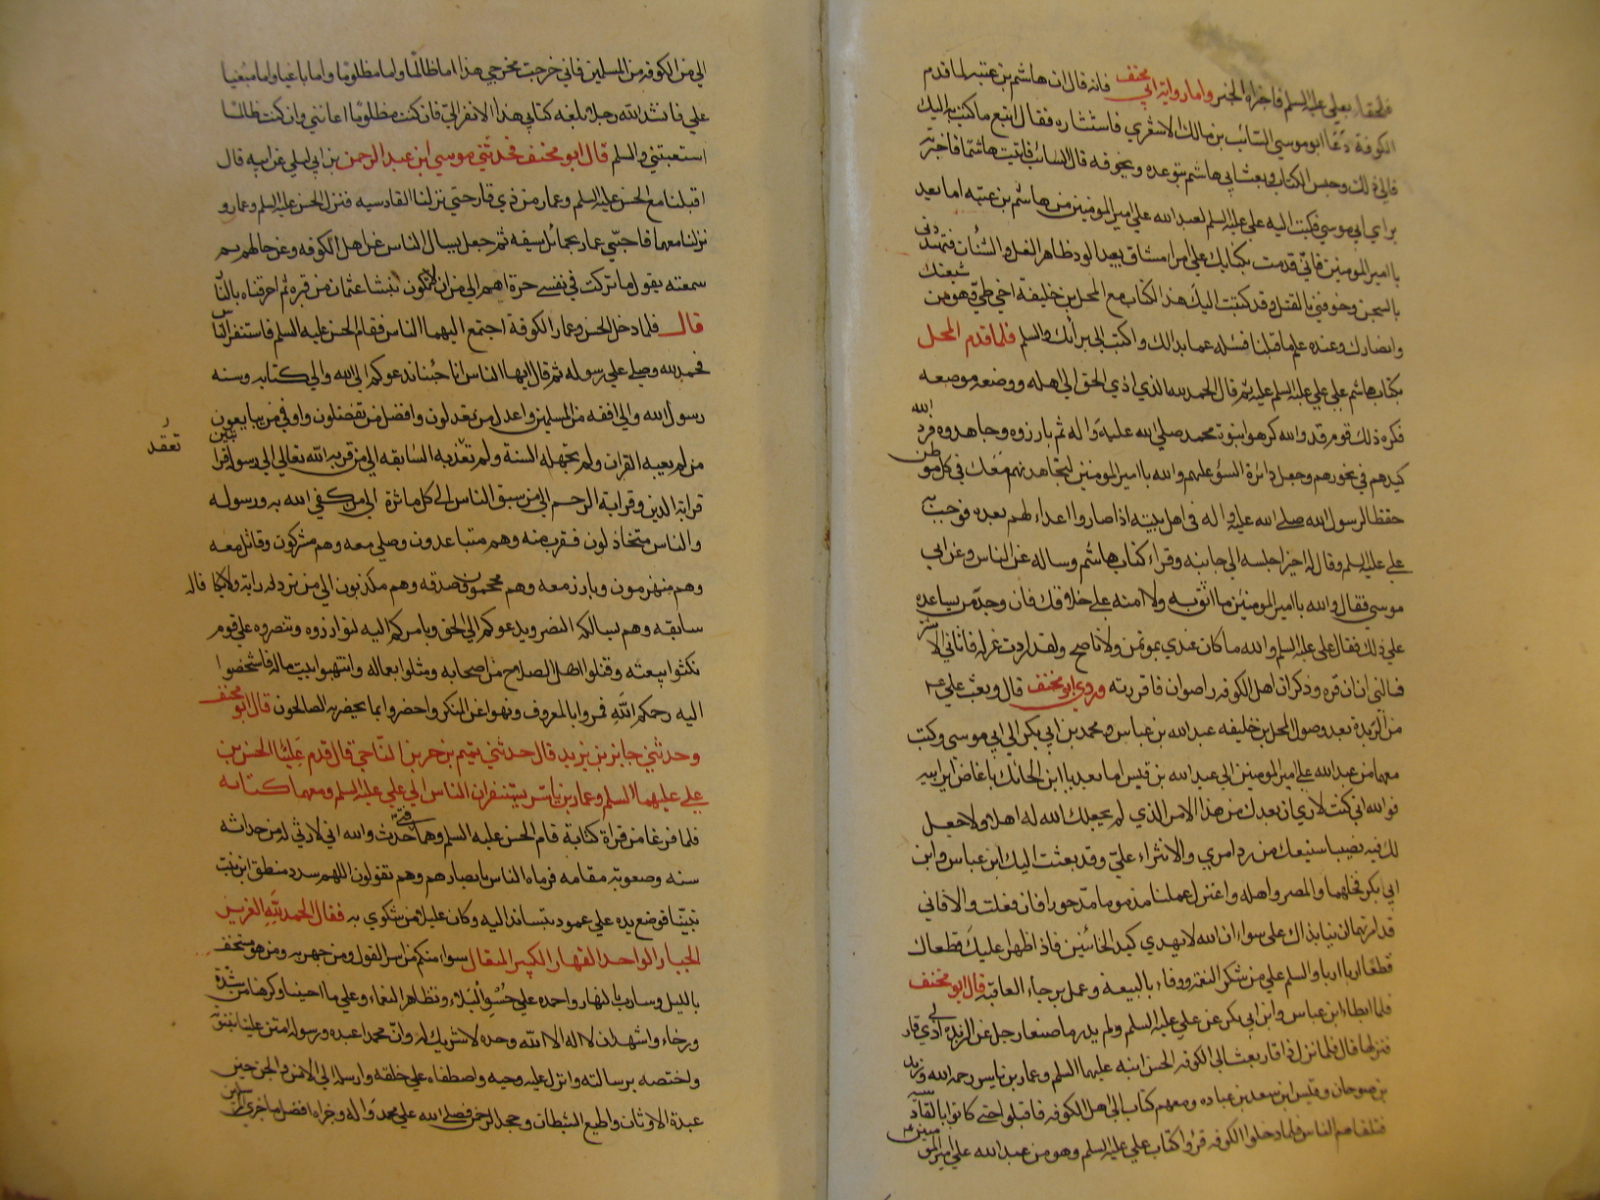 فلحقا بعلي عليه السلم فاخبراه الخبر واما رواية ابي مخنف فانه قال ان هاشم بن عتبه لما قدم
الكوفة دعا ابو موسى السائب بن مالك الاشعري فاستشاره فقال اتبع ما كتب به اليك
فابى ذلك وحبس الكتاب وبعث الى هاشم يتوعده ويخوفه قال السائب فاتيت هاشما فاخبرته
براي ابي موسى فكتب اليه علي عليه السلم لعبد الله علي امير المومنين من هاشم بن عتبه اما بعد
يا امير المومنين فاني قدمت بكتابك على امرء مشاق بعيد الود ظاهر الغل والشنان فتهددني
بالسجن وخوفني بالقتل وقد كتبت اليك هذا الكتاب مع المحل بن خليفة اخي طي وهو من شيعتك
وانصارك وعنده علم ما قبلنا فسئله عما بدالك واكتب الي برأيك والسلم فلما قدم المحل
بكتاب هاشم على علي عليه السلم سلم عليه ثم قال الحمد لله الذي ادى الحق الى اهله ووضعه موضعه
فكره ذلك قوم قد والله كرهوا نبوة محمد صلى الله عليه واله ثم بارزوه وجاهدوه فرد الله
كيدهم في نحورهم وجعل دائرة السوء عليهم والله يا امير المومنين لنجاهدنهم معك في كل موطن
حفظا لرسول الله صلى الله عليه واله في اهل بيته اذ صاروا اعداء لهم بعده فرحب به
علي عليه السلم وقال له خيرا ثم اجلسه الى جانبه وقراء كتاب هاشم وساله عن الناس وعن ابي
موسى فقال والله يا امير المومنين ما اثق به ولا امنه على خلافك ان وجد من يساعده
على ذلك فقال علي عليه السلم والله ما كان عندي بموتمن ولا ناصح ولقد اردت عزله فاتاني الاشتر
فسالني ان اقره وذكر ان اهل الكوفه به راضوان فاقررته وروى ابو مخنف قال وبعث علي ع
من الربذة بعد وصول المحل بن خليفه عبد الله بن عباس ومحمد بن ابي بكر الى ابي موسى وكتب
معهما من عبد الله علي امير المومنين الى عبد الله بن قيس اما بعد يا ابن الحائك يا عاض اير ابيه
فو الله اني كنت لارى ان بعدك من هذا الامر الذي لم يجعلك الله له اهلا ولا جعل
لك فيه نصيبا سيمنعك من رد امري والانتزاء علي وقد بعثت اليك ابن عباس وابن
ابي بكر فخلهما والمصر واهله واعتزل عملنا مذموما مدحورا فان فعلت والا فاني
قد امرتهما ان ينابذاك على سواء ان الله لا يهدي كيد الخائنين فاذا ظهرا عليك قطعاك
قطعا اربا اربا والسلم على من شكر النعمة ووفاء بالبيعه وعمل برجاء العاقبة قال ابو مخنف
فلما ابطاء ابن عباس وابن ابي بكر عن علي عليه السلم ولم يدر ما صنعا رحل عن الربذة الى ذي قار
فنزلها قال فلما نزل ذا قار بعث الى الكوفه الحسن ابنه عليهما السلم وعمار بن ياسر رحمه الله وزيد
بن صوحان وقيس ابن سعد بن عباده ومعهم كتاب الى اهل الكوفه فاقبلوا حتى كانوا بالقادسيه
فتلقاهم الناس فلما دخلوا الكوفه قرؤا كتاب علي عليه السلم وهو من عبد الله علي امير المومنين
الى من الكوفه من المسلمين فاني خرجت مخرجي هذا اما ظالما واما مظلوما واما باغيا واما مبغيا
علي فانشد الله رجلا بلغه كتابي هذا الا نفر الي فان كنت مظلوما اعانني وان كنت ظالما
استعتبني والسلم قال ابو مخنف فحدثني موسى ابن عبد الرحمن بن ابي ليلى عن ابيه قال
اقبلنا مع الحسن عليه السلم وعمار من ذي قار حتى نزلنا القادسيه فنزل الحسن عليه السلم وعمار و
نزلنا معهما فاحتبى عمار بحمائل سيفه ثم جعل يسال الناس عن اهل الكوفه وعن حالهم ثم
سمعته يقول ما تركت في نفسي حزة اهم الي من ان لا نكون نبشنا عثمان من قبره ثم احرقناه بالنار
قال فلما دخل الحسن وعمار الكوفة اجتمع اليهما الناس فقام الحسن عليه السلم فاستنفر الناس
فحمد الله وصلى على رسوله ثم قال ايها الناس انا جئنا ندعوكم الى الله والى كتابه وسنه
رسول الله والى افقه من المسلمين واعدل من تعدلون وافضل من تفضلون واوفى من يبايعون
تعقد
من لم يعيه القران ولم تجهله السنة ولم تقعد به السابقه الى من قربه الله تعالى الى رسوله قرابتين
قرابة الدين وقرابة الرحم الى من سبق الناس الى كل ماثرة الى من كفى الله به ورسوله
والناس متخاذلون فقرب منه وهم متباعدون وصلى معه وهم مشركون وقاتل معه
وهم منهزمون وبارز معه وهم محجمون وصدقه وهم مكذبون الى من لم ترد له رايه ولا تكافا له
سابقه وهم يسالكم النصر ويدعوكم الى الحق ويامركم بالمسير اليه لتوازروه وتنصروه على قوم
نكثوا بيعته وقتلوا اهل الصلاح من اصحابه ومثلوا بعماله وانتهبوا بيت ماله فاشخصوا
اليه رحمكم الله فمروا بالمعروف ونهوا عن المنكر واحضروا بما يحضر به الصالحون قال ابو مخنف
وحدثني جابر بن يزيد قال حدثني تميم بن حريز الناجي قال قدم علينا الحسن بن
علي عليهما السلم وعمار بن ياسر يستنفران الناس الى علي عليه السلم ومعهما كتابه
فلما فرغا من قراة كتابة قام الحسن عليه السلم وهو فتى حدث والله اني لارثي له من حداثه
سنه وصعوبة مقامه فرماه الناس بابصارهم وهم تقولون اللهم سدد منطق ابن بنت
نبينا فوضع يده على عمود يتساند اليه وكان عليلا من شكوى به فقال الحمد لله العزيز
الجبار الواحد القهار الكبير المتعال سواء منكم من اسر القول ومن جهر به ومن هو مستخف
بالليل وسارب بالنهار واحمده على حسن البلاء وتظاهر النعماء وعلى ما احببنا وكرهنا من شدة
ورخاء واشهد ان لا اله الا الله وحده لا شريك له وان محمدا عبده ورسوله امتن علينا بنبوته
واختصه برسالته وانزل عليه وحيه واصطفاه على خلقه وارسله الى الانس والجن حين
عبدة الاوثان واطيع الشيطان وجحد الرحمن فصلى الله على محمد واله وجزاه افضل ما جزى المرسلين